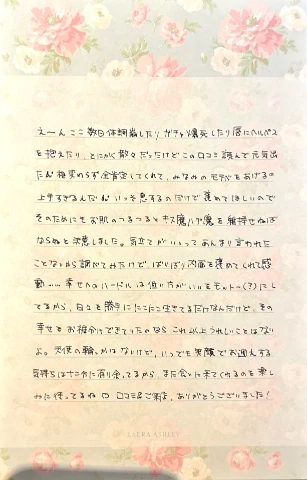 え〜んここ数日体調崩したりガチャ爆死したり唇にヘルペス
を抱えたり、とにかく散々だったけどこの口コミ読んで元気出
た！相変わらず全肯定してくれて、みなみのモチベをあげるの
上手すぎるんだね いっも思うのだけど褒めてほしいので
そのためにもお肌のつるつるとキス魔ハグ魔を維持せねば
ならぬと決意しました。気立てがいいってあんまり言われた
ことないから調べてみたけど、ばりばり内面を褒めてくれて感
動…… 幸せのハードルは低い方がいいをモットー(？)にし
てるから、日々を勝手ににこにこ生きてるだけなんだけど、その
幸せをお裾分けできていたのならこれ以上うれしいことはない
よ。天使の輪っかはないけど、いつでも笑顔でお迎えする
気持ちは十二分に有り余ってるから、また会いに来てくれるのを楽し
みに待ってるね 口コミ&ご来店、ありがとうございました！
LAURA ASHLEY